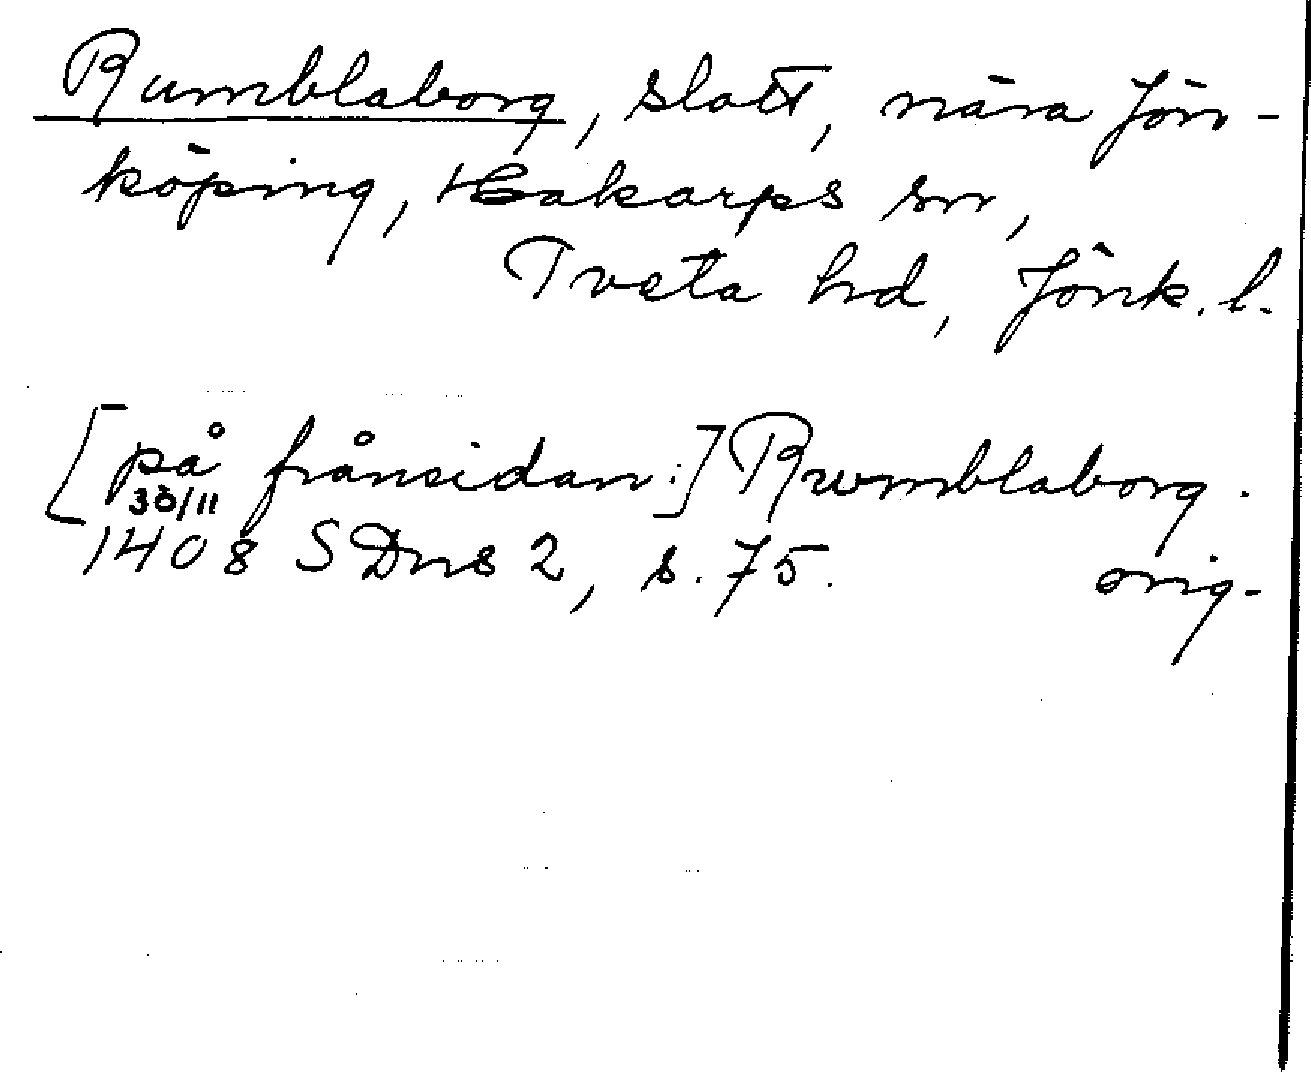 Rumblaborg, slott, nära Jön-
köping, Hakarps sn,
Tveta hd, Jönk. l.
[på frånsidan:] Rwmblaborg.
30/11
1408 SDns 2, s. 75. orig.